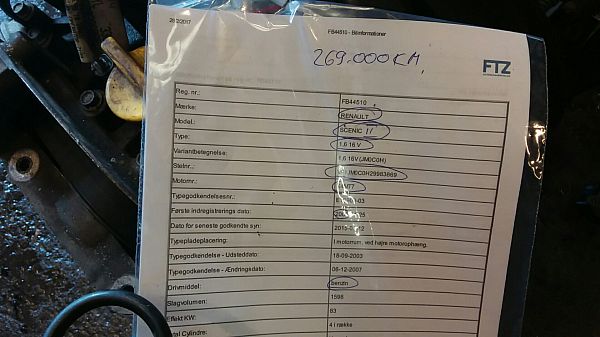 28/2/2017
FB44510 - Bilinformationer
269.000KM
FTZ
Reg. nr.: FB44510
Mærke: RENAULT
Model: SCENIC II
Type: 1,6 16 V
Variantbetegnelse: 1,6 16V (JM0C0H)
Stelnr.:
Motornr.:
Typegodkendelsesnr.:
Første indregistrerings dato:
Dato for seneste godkendte syn:
Typepladeplacering: I motorrum, ved højre motorophæng.
Typegodkendelse - Udsteddato: 18-09-2003
Typegodkendelse - Ændringsdato: 06-12-2007
Drivmiddel: benzin
Slagvolumen: 1598
Effekt KW: 83
Cylindre: 4 i række